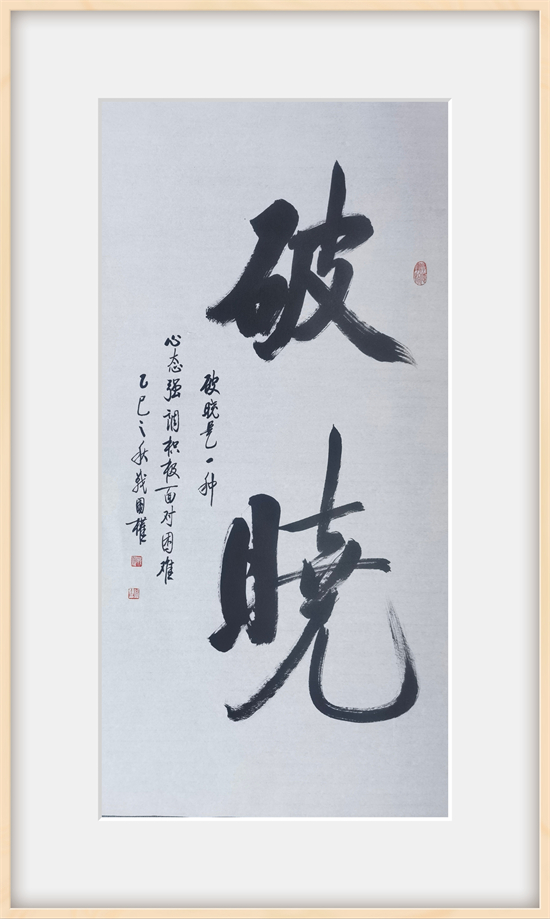 破晓
破晓是一种
心态强调积极面对困难
乙巳之秋戟国權